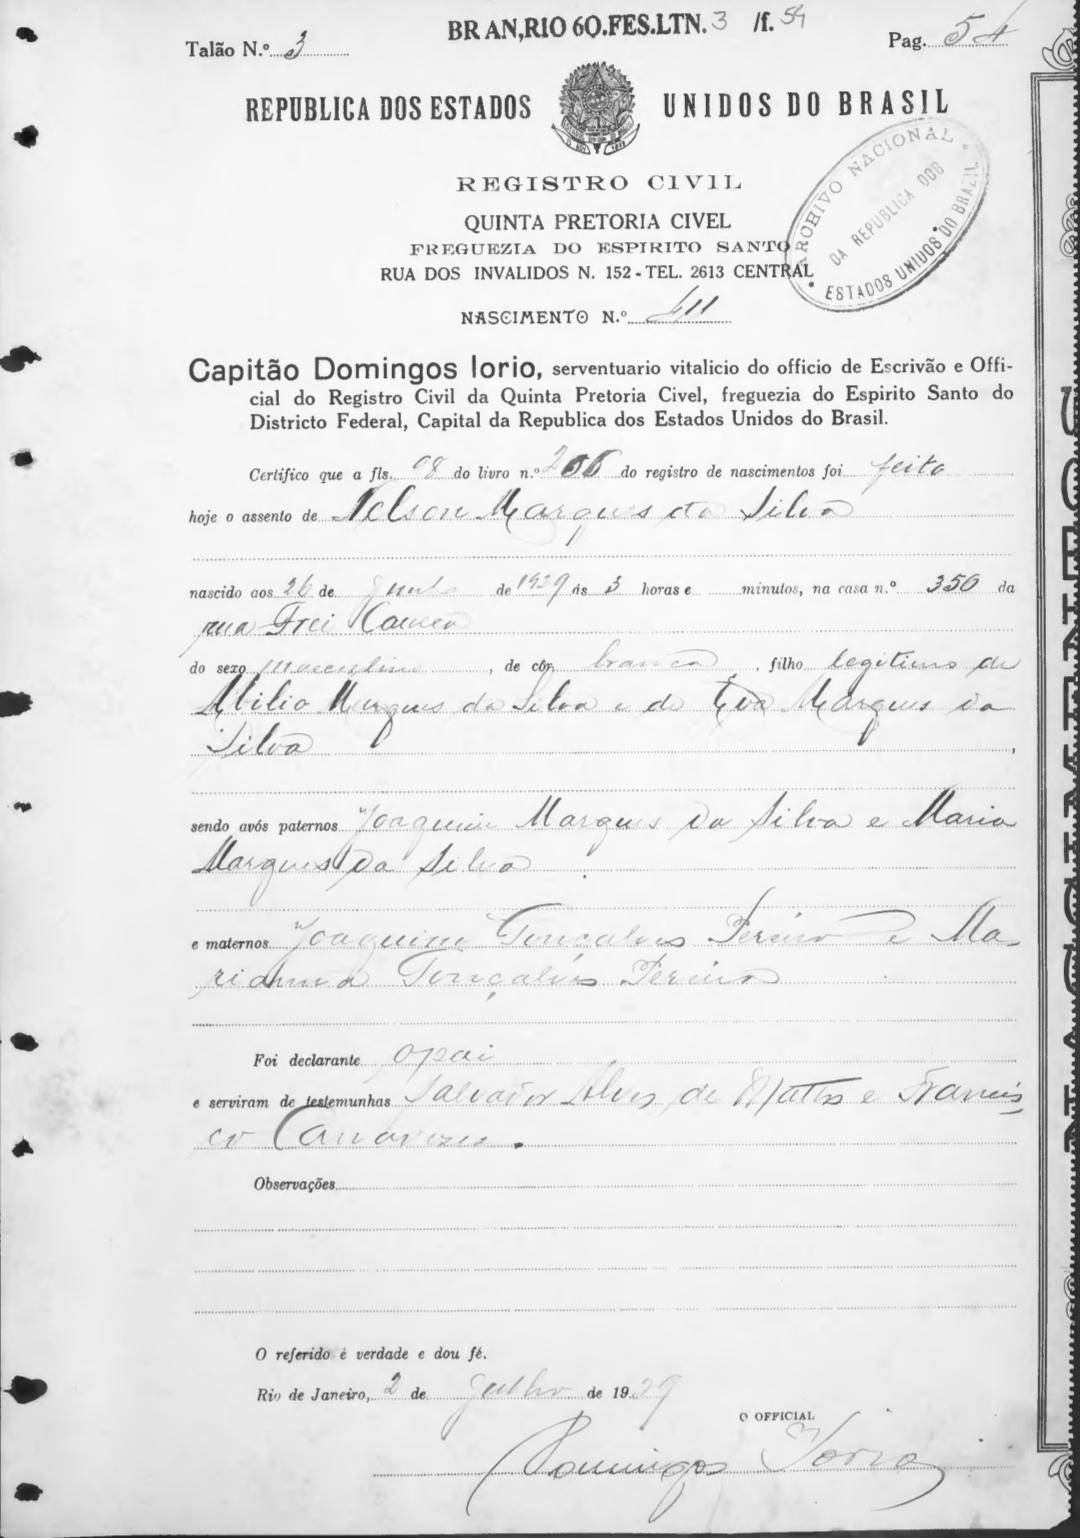 BR AN,RIO 6O.FES.LTN. 3 /f. 54
Talão N.º 3
Pag. 54
REPUBLICA DOS ESTADOS UNIDOS DO BRASIL
ARCHIVO NACIONAL
DA REPUBLICA DOS
ESTADOS UNIDOS DO BRAZIL
REGISTRO CIVIL
QUINTA PRETORIA CIVEL
FREGUEZIA DO ESPIRITO SANTO
RUA DOS INVALIDOS N. 152 - TEL. 2613 CENTRAL
NASCIMENTO N.º 411
Capitão Domingos Iorio, serventuario vitalicio do officio de Escrivão e Offi-
cial do Registro Civil da Quinta Pretoria Civel, freguezia do Espirito Santo do
Districto Federal, Capital da Republica dos Estados Unidos do Brasil.
Certifico que a fls. 98 do livro n.º do registro de nascimentos foi feito
hoje o assento de Nelson Marques da Silva
nascido aos 26 de Junho de 1929 ás 3 horas e minutos, na casa n.º 350 da
rua Frei Caneca
do sexo masculino, de côr branca, filho legitimo de
Abilio Marques da Silva e de Eva Marques da
Silva,
sendo avós paternos Joaquim Marques da Silva e Maria
Marques da Silva
e maternos Joaquim Gonçalves Pereira e Ma-
rianna Gonçalves Pereira
Foi declarante o pai
e serviram de testemunhas Salvador Alves de Mattos e Francis
co
Observações
O referido é verdade e dou fé.
Rio de Janeiro, 2 de Julho de 1929
O OFFICIAL
Domingos Iorio
NASCIMENTOS